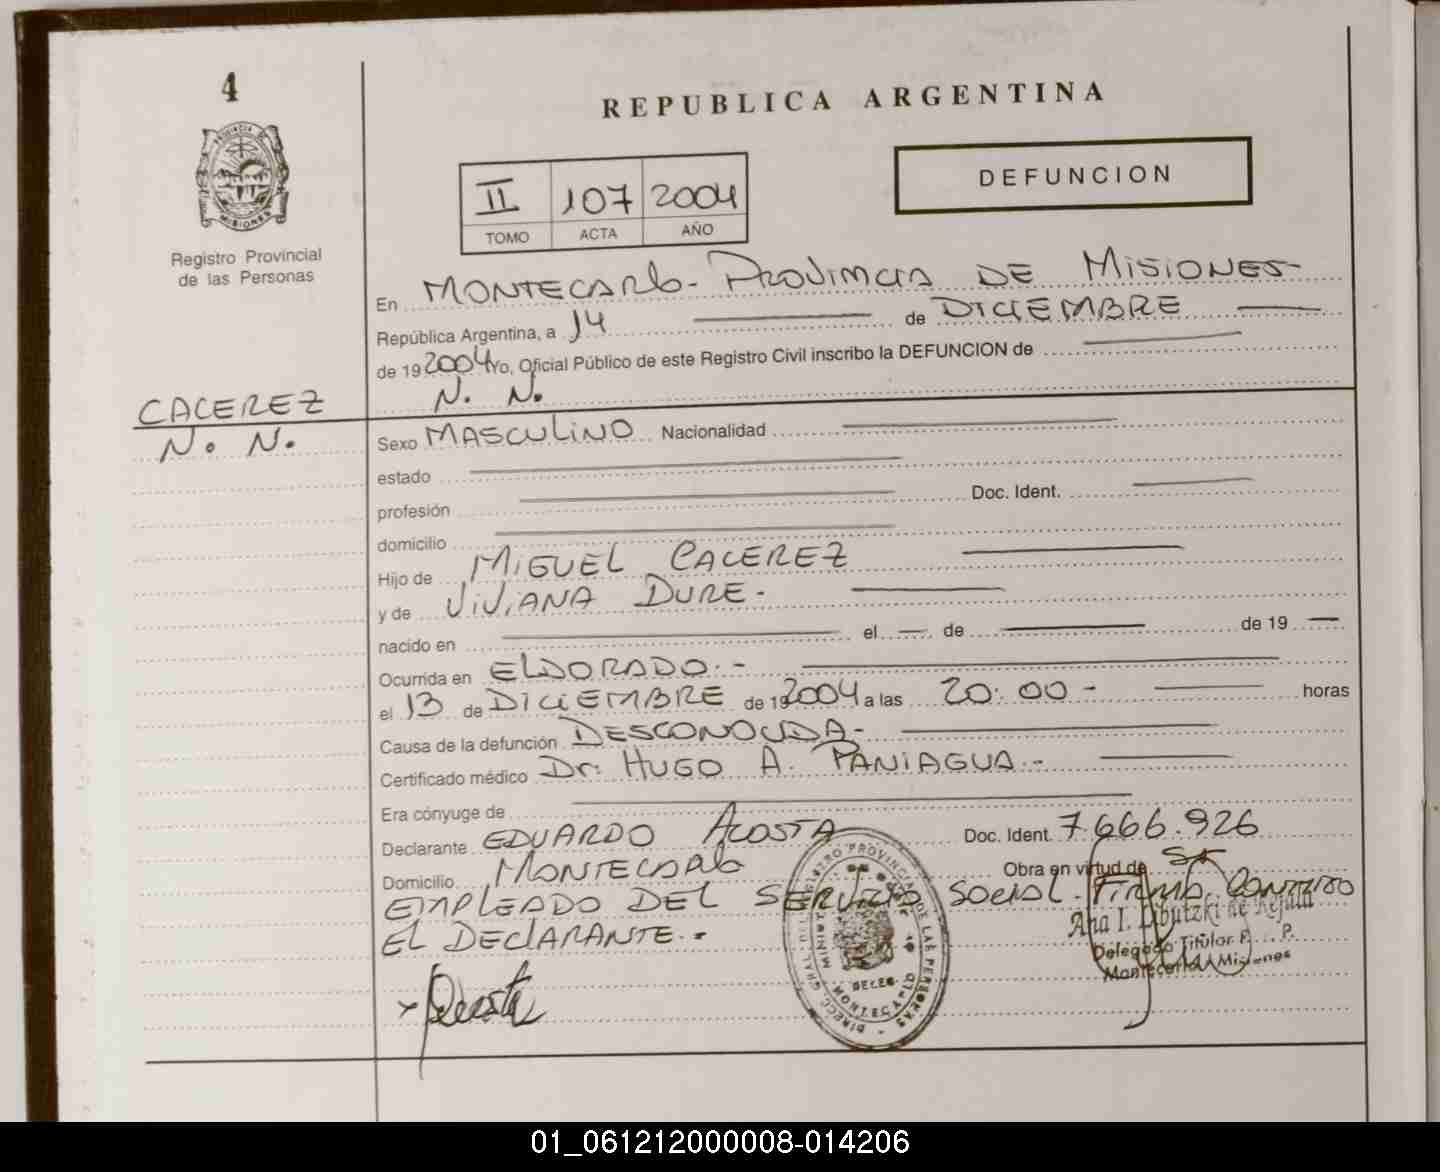 4
PROVINCIA DE
MISIONES
Registro Provincial
de las Personas
REPUBLICA ARGENTINA
II 107 2004
TOMO ACTA AÑO
DEFUNCION
En MONTECARLO - PROVINCIA DE MISIONES
República Argentina, a 14 de DICIEMBRE
de 19 2004 Yo, Oficial Público de este Registro Civil inscribo la DEFUNCION de
N. N.
CACEREZ
N. N.
Sexo MASCULINO Nacionalidad
estado
profesión Doc. Ident.
domicilio
Hijo de MIGUEL CACEREZ
y de VIVIANA DURE.
nacido en el de de 19
Ocurrida en ELDORADO.-
el 13 de DICIEMBRE de 19 2004 a las 20:00 - horas
Causa de la defunción DESCONOCIDA-
Certificado médico Dr: HUGO A. PANIAGUA.-
Era cónyuge de
Declarante EDUARDO ACOSTA Doc. Ident. 7.666.926
Domicilio MONTECARLO Obra en virtud de Ser
EMPLEADO DEL SERVICIO SOCIAL. FIRMA CONMIGO
EL DECLARANTE.-
Acosta
DIRECC. GRAL. DEL REGISTRO PROVINCIAL DE LAS PERSONAS
DELEG.
MONTECARLO
Ana I. Libutzki de
Delegado Titular R. P.
Montecarlo Misiones
01_061212000008-014206